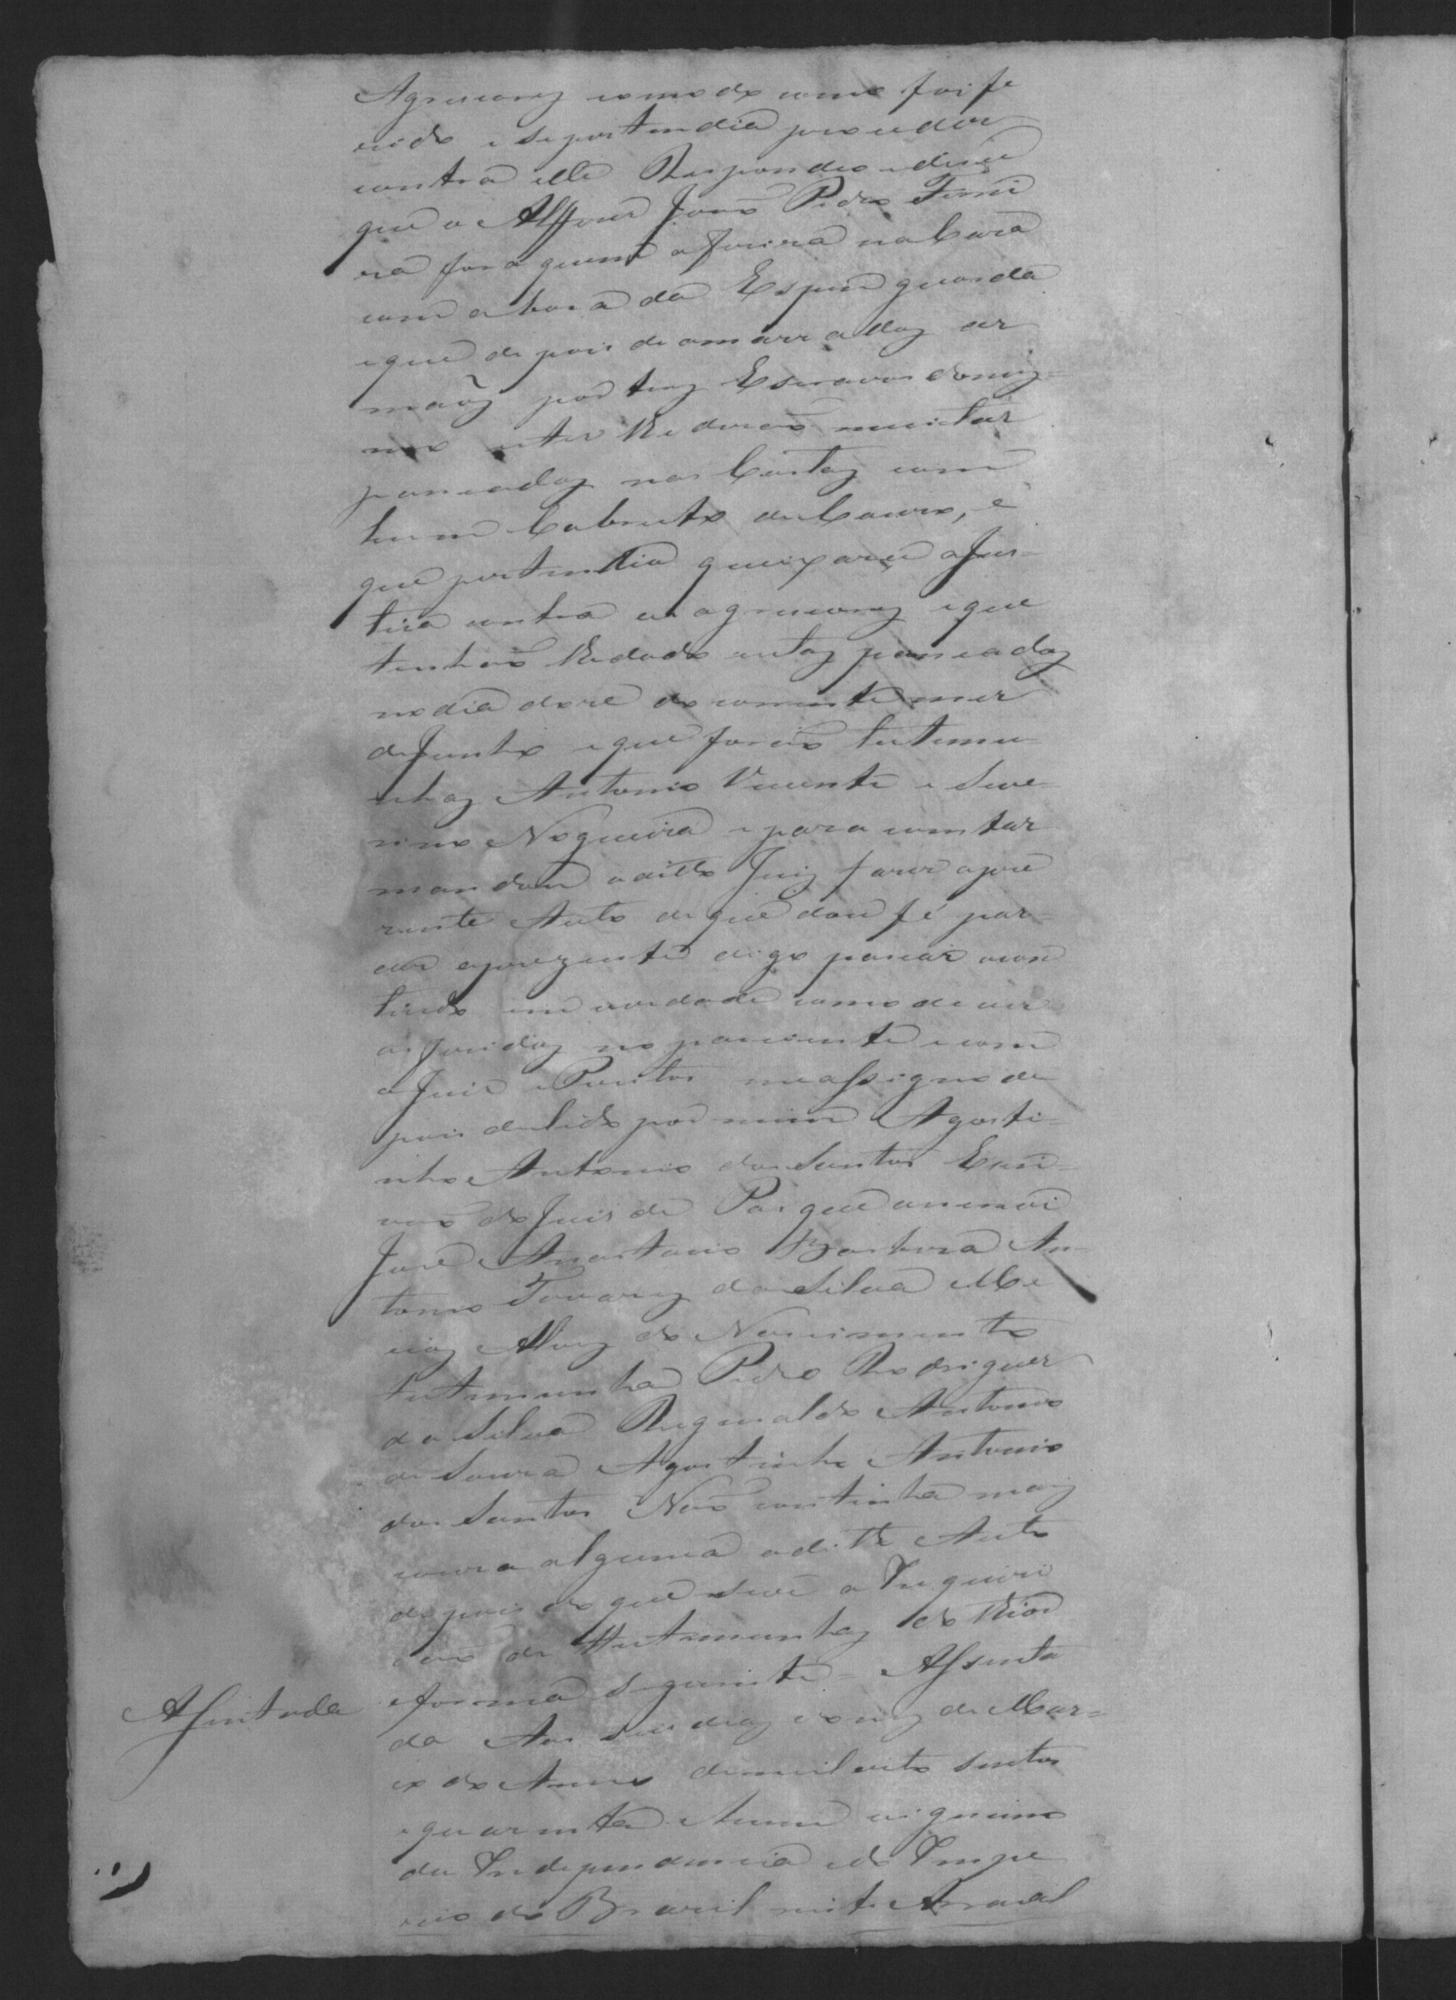 Agressores e o modo como foi fe
rido e se pertendia proceder
contra elle Respondeo e disse
que o Alferes João Pedro Ferrei
ra fora quem o ferira na Cara
com a boca da Espinguarda
e que depois de amarradas as
maõs por tres Escravos do mes-
mo estes lhe deraõ muintas
pancadas nas Costas com
hum Cabresto de Couro, e
que pertendia queixarse a Jus-
tiça contra os agressores e que
tinhaõ lhe dado estas pancadas
no dia doze do corrente mes
de Junho e que foraõ testemu-
nhas Antonio Vicente e Seve-
rino Nogueira e para constar
mandou o dito Juis fazer o pre
zente Auto de que dou fé por
o prezente digo passar o con
tiudo em verdade como de ver
as feridas no paciente e com
o Juis e Peritos me assigno de
pois de lido por mim Agosti-
nho Antonio dos Santos Escri-
vaõ do Juis de Pas que o escrevi
José Anastacio Barboza An-
tonio Tavares da Silva Me
cias Alves do Nascimento
testemunha Pedro Rodrigues
da Silva Reginaldo Antonio
de Souza Agostinho Antonio
dos Santos Naõ continha mais
couza alguma o dito Auto
depois do que se ve a Inquiri
caõ de testemunhas do theor
e forma seguinte = Assenta
da Aos dias do mes de Mar-
co do Anno de mil oito sentos
e quarenta e hum vigessimo
da Independencia e do Impe
rio do Brazil neste Arraial
Assentada